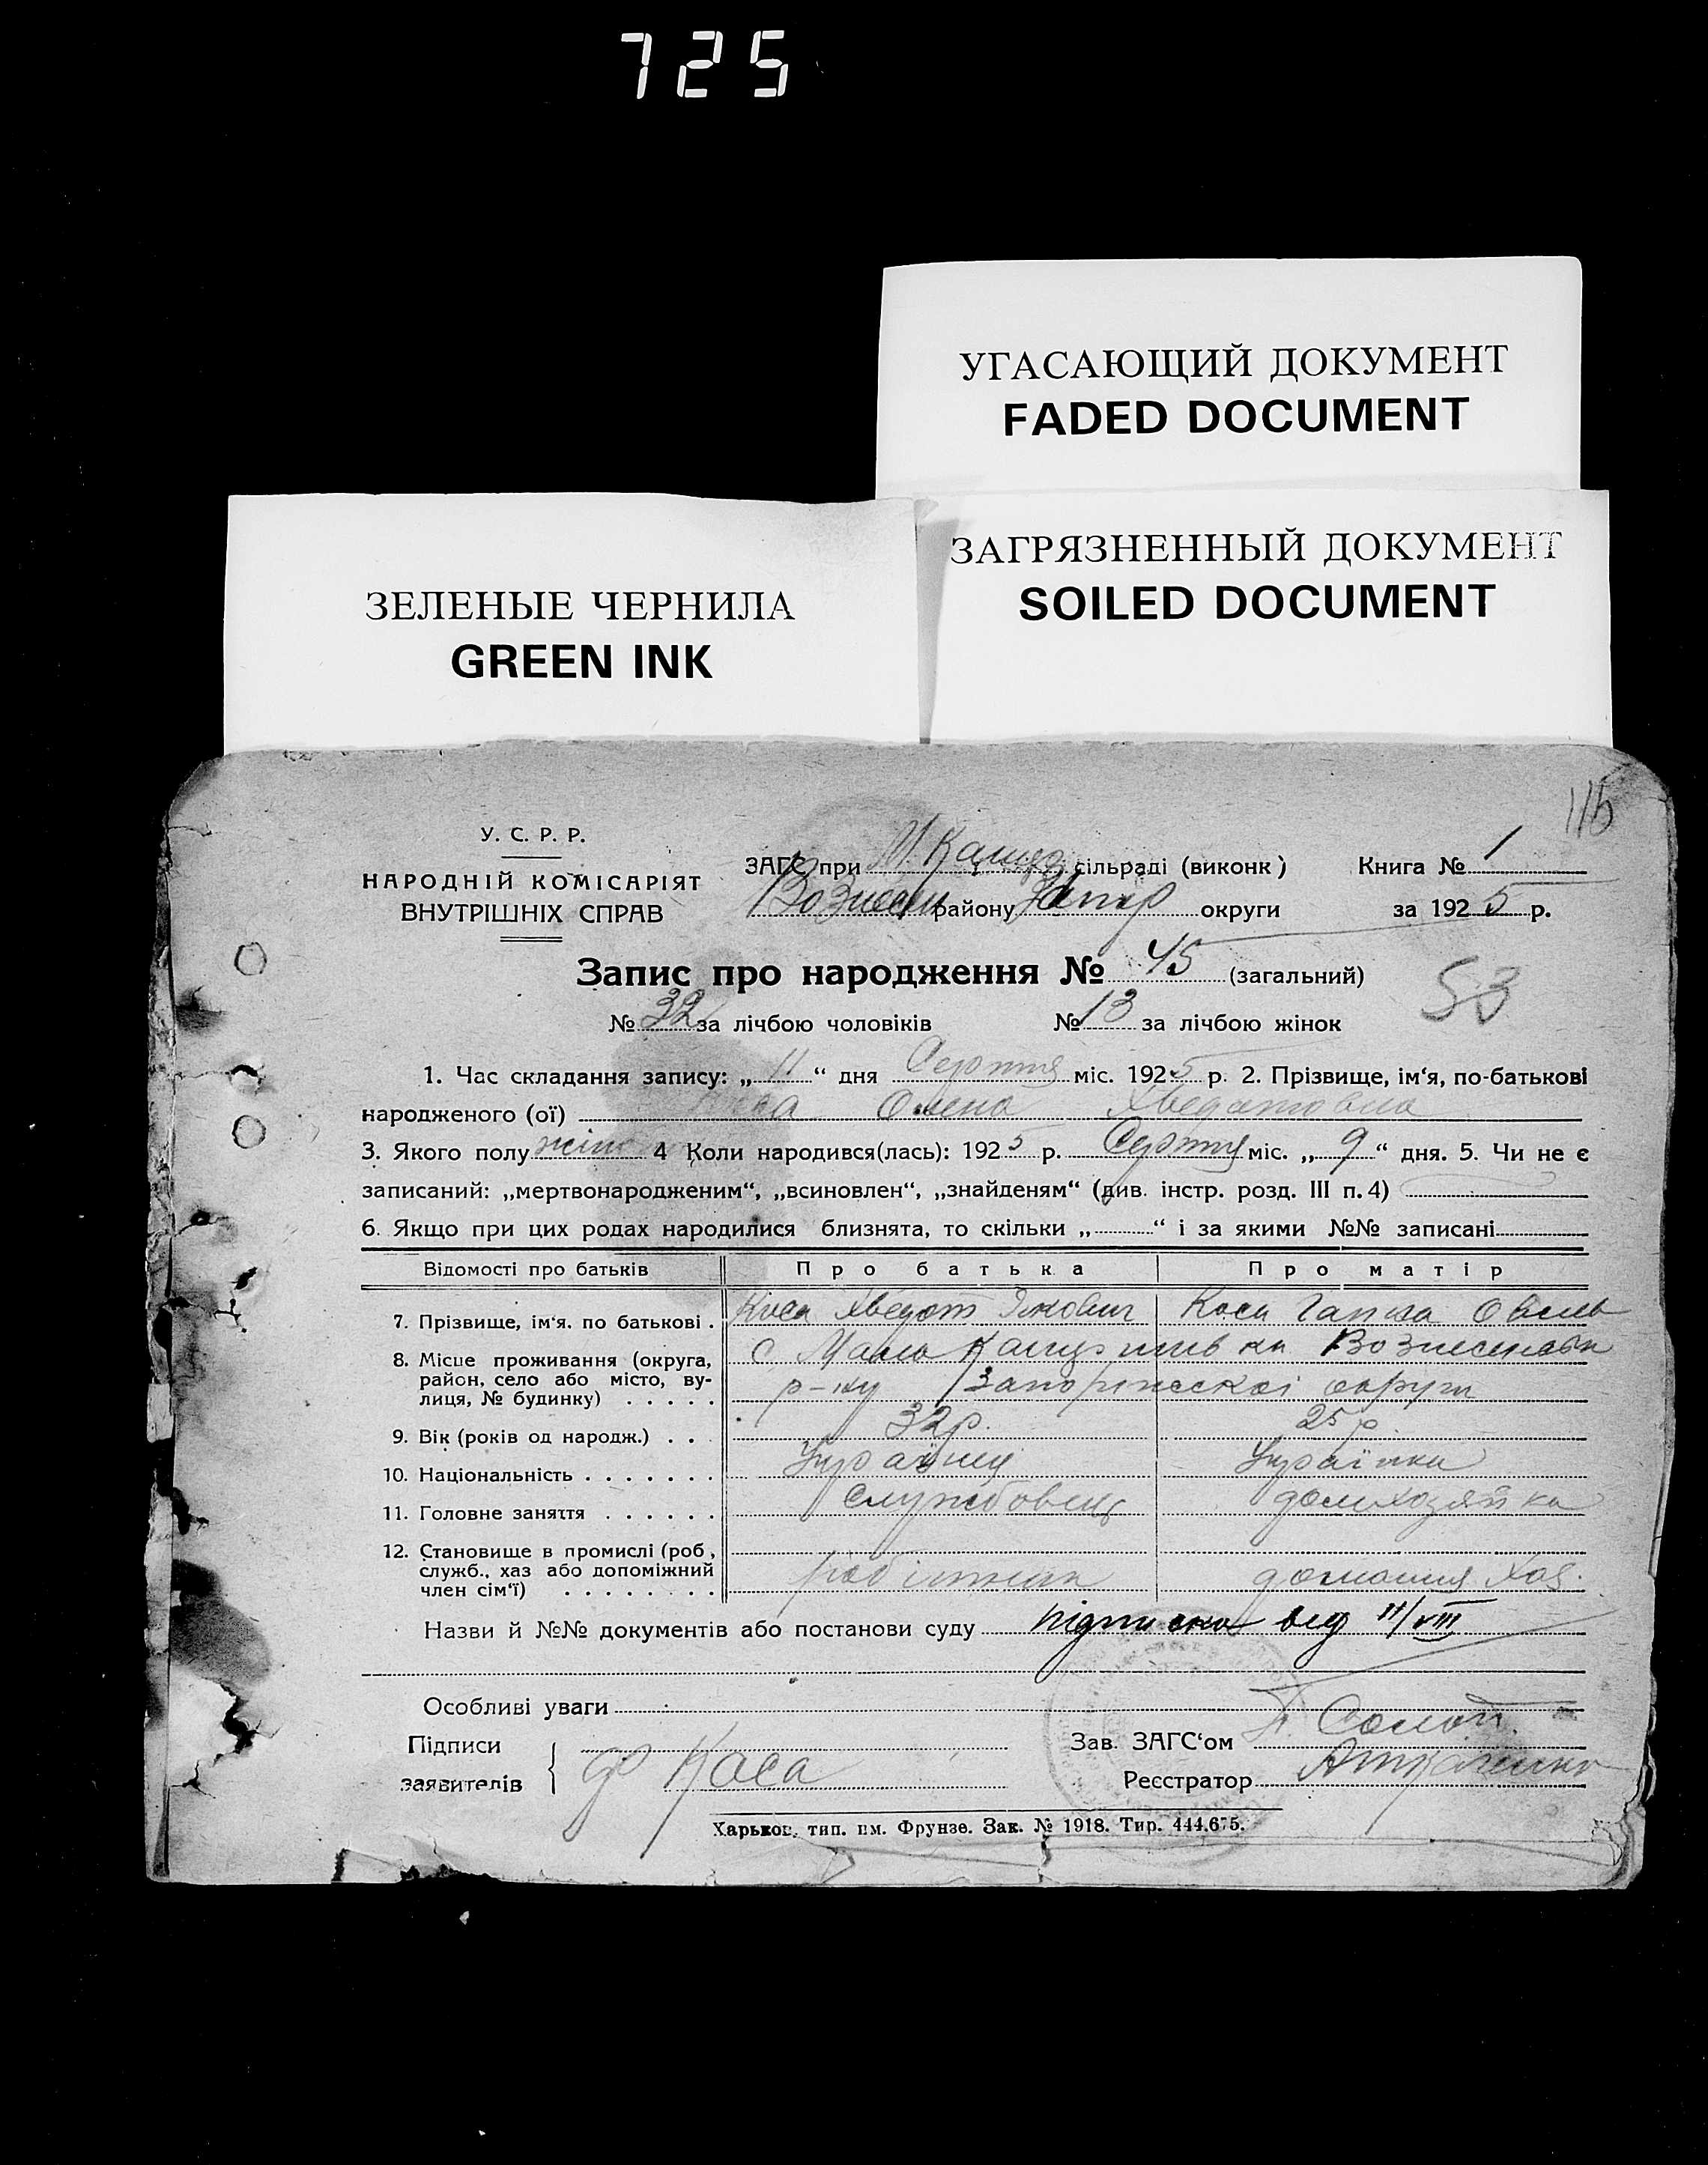 725
УГАСАЮЩИЙ ДОКУМЕНТ
FADED DOCUMENT
ЗАГРЯЗНЕННЫЙ ДОКУМЕНТ
SOILED DOCUMENT
ЗЕЛЕНЫЕ ЧЕРНИЛА
GREEN INK
115
У. С. Р. Р.
НАРОДНІЙ КОМІСАРІЯТ
ВНУТРІШНІХ СПРАВ
ЗАГС при М. Кащ сільраді (виконк) Книга № 1
Вознесен району Запор округи за 1925 р.
Запис про народження № 45 (загальний)
53
№ 32 за лічбою чоловіків № 13 за лічбою жінок
1. Час складання запису: „11“ дня Серпня міс. 1925 р. 2. Прізвище, ім‘я, по-батькові
народженого (ої) Олена Хведотовна
3. Якого полу жіно 4 Коли народився(лась): 1925 р. Серпня міс. „9“ дня. 5. Чи не є
записаний: „мертвонародженим“, „всиновлен“, „знайденям“ (див. інстр. розд. III п. 4)
6. Якщо при цих родах народилися близнята, то скільки „ “ і за якими №№ записані
Відомості про батьків Про батька Про матір
7. Прізвище, ім‘я. по батькові . Коса Хведот Якович Коса Гапка
8. Місце проживання (округа, район, село або місто, вулиця, № будинку) . . . . . с Мало Вознесенськ
р-ну Запоріжської округи
9. Вік (років од народж.) . . . 32 р. 25 р
10. Національність . . . . . . . Українец Українка
11. Головне заняття . . . . . . Службовець домхозяйка
12. Становище в промислі (роб, служб., хаз або допоміжний член сім‘ї) . . . . . . . . робітник домашня хаз.
Назви й №№ документів або постанови суду підписка від 11/VIII
Особливі уваги
Підписи
заявителів
Коса
Зав. ЗАГС‘ом
Реєстратор
Харьков, тип. им. Фрунзе. Зак. № 1918. Тир. 444.675.